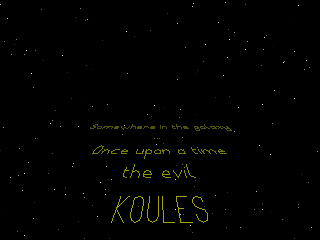 Somewhere in the galaxy
Once upon a time
the evil
KOULES